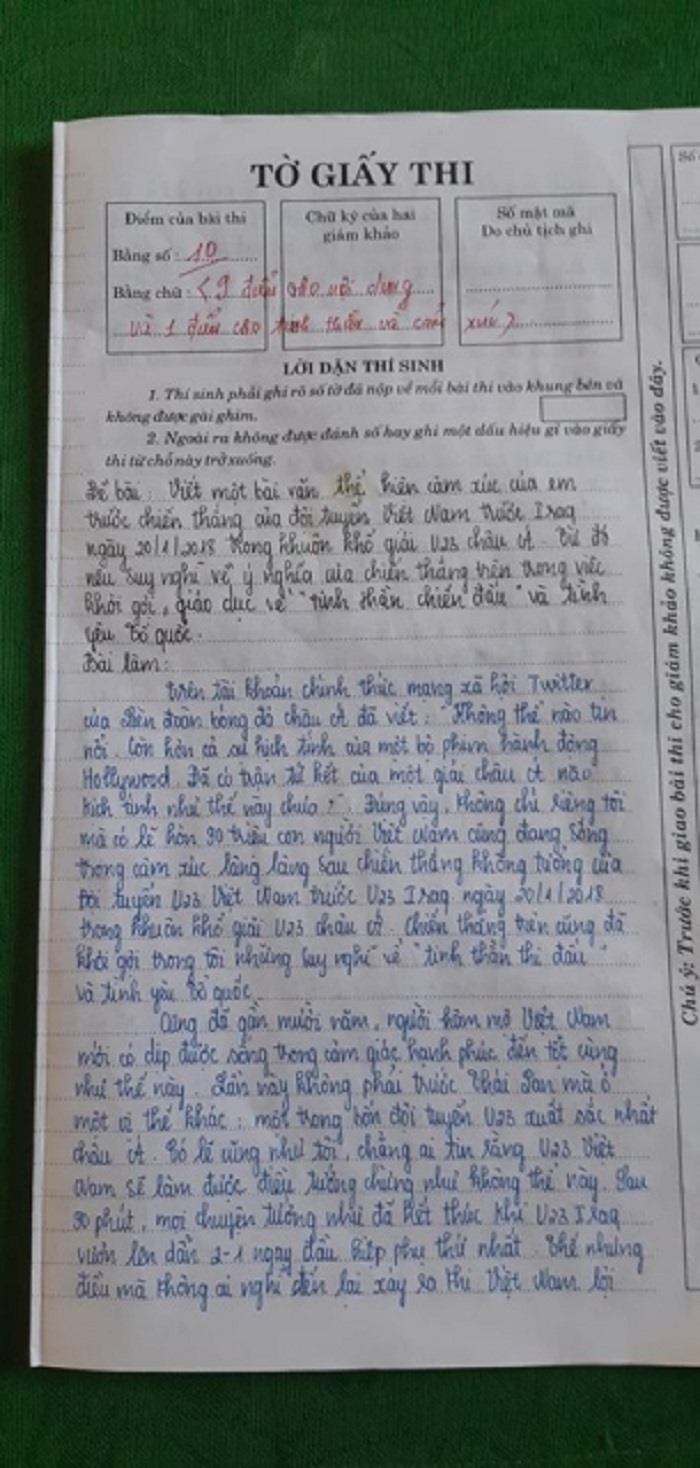 TỜ GIẤY THI
Điểm của bài thi
Bằng số: 10
Bằng chữ: (9 điểm cho nội dung
và 1 điểm cho tinh thần và cảm xúc)
Chữ ký của hai
giám khảo
Số mật mã
Do chủ tịch ghi
Số
LỜI DẶN THÍ SINH
1. Thí sinh phải ghi rõ số tờ đã nộp về mỗi bài thi vào khung bên và
không được gài ghim.
2. Ngoài ra không được đánh số hay ghi một dấu hiệu gì vào giấy
thi từ chỗ này trở xuống.
Đề bài: Viết một bài văn thể hiện cảm xúc của em
trước chiến thắng của đội tuyển Việt Nam trước Iraq
ngày 20/1/2018 trong khuôn khổ giải U23 châu Á. Từ đó
nêu suy nghĩ về ý nghĩa của chiến thắng trên trong việc
khơi gợi, giáo dục về "tinh thần chiến đấu" và tình
yêu Tổ quốc.
Bài làm:
Trên tài khoản chính thức mạng xã hội Twitter
của Liên đoàn bóng đá châu Á đã viết: "Không thể nào tin
nổi. Còn hơn cả sự kịch tính của một bộ phim hành động
Hollywood. Đã có trận tứ kết của một giải châu Á nào
kịch tính như thế này chưa?". Đúng vậy, không chỉ riêng tôi
mà có lẽ hơn 90 triệu con người Việt Nam cũng đang sống
trong cảm xúc lâng lâng sau chiến thắng không tưởng của
đội tuyển U23 Việt Nam trước U23 Iraq ngày 20/1/2018
trong khuôn khổ giải U23 châu Á. Chiến thắng trên cũng đã
khơi gợi trong tôi những suy nghĩ về "tinh thần thi đấu"
và tình yêu Tổ quốc.
Cũng đã gần mười năm, người hâm mộ Việt Nam
mới có dịp được sống trong cảm giác hạnh phúc đến tột cùng
như thế này. Lần này không phải trước Thái Lan mà ở
một vị thế khác: một trong bốn đội tuyển U23 xuất sắc nhất
châu Á. Có lẽ cũng như tôi, chẳng ai tin rằng U23 Việt
Nam sẽ làm được điều tưởng chừng như không thể này. Sau
90 phút, mọi chuyện tưởng như đã kết thúc khi U23 Iraq
vươn lên dẫn 2-1 ngay đầu hiệp phụ thứ nhất. Thế nhưng
điều mà không ai nghĩ đến lại xảy ra khi Việt Nam lội
Chú ý: Trước khi giao bài thi cho giám khảo không được viết vào đây.